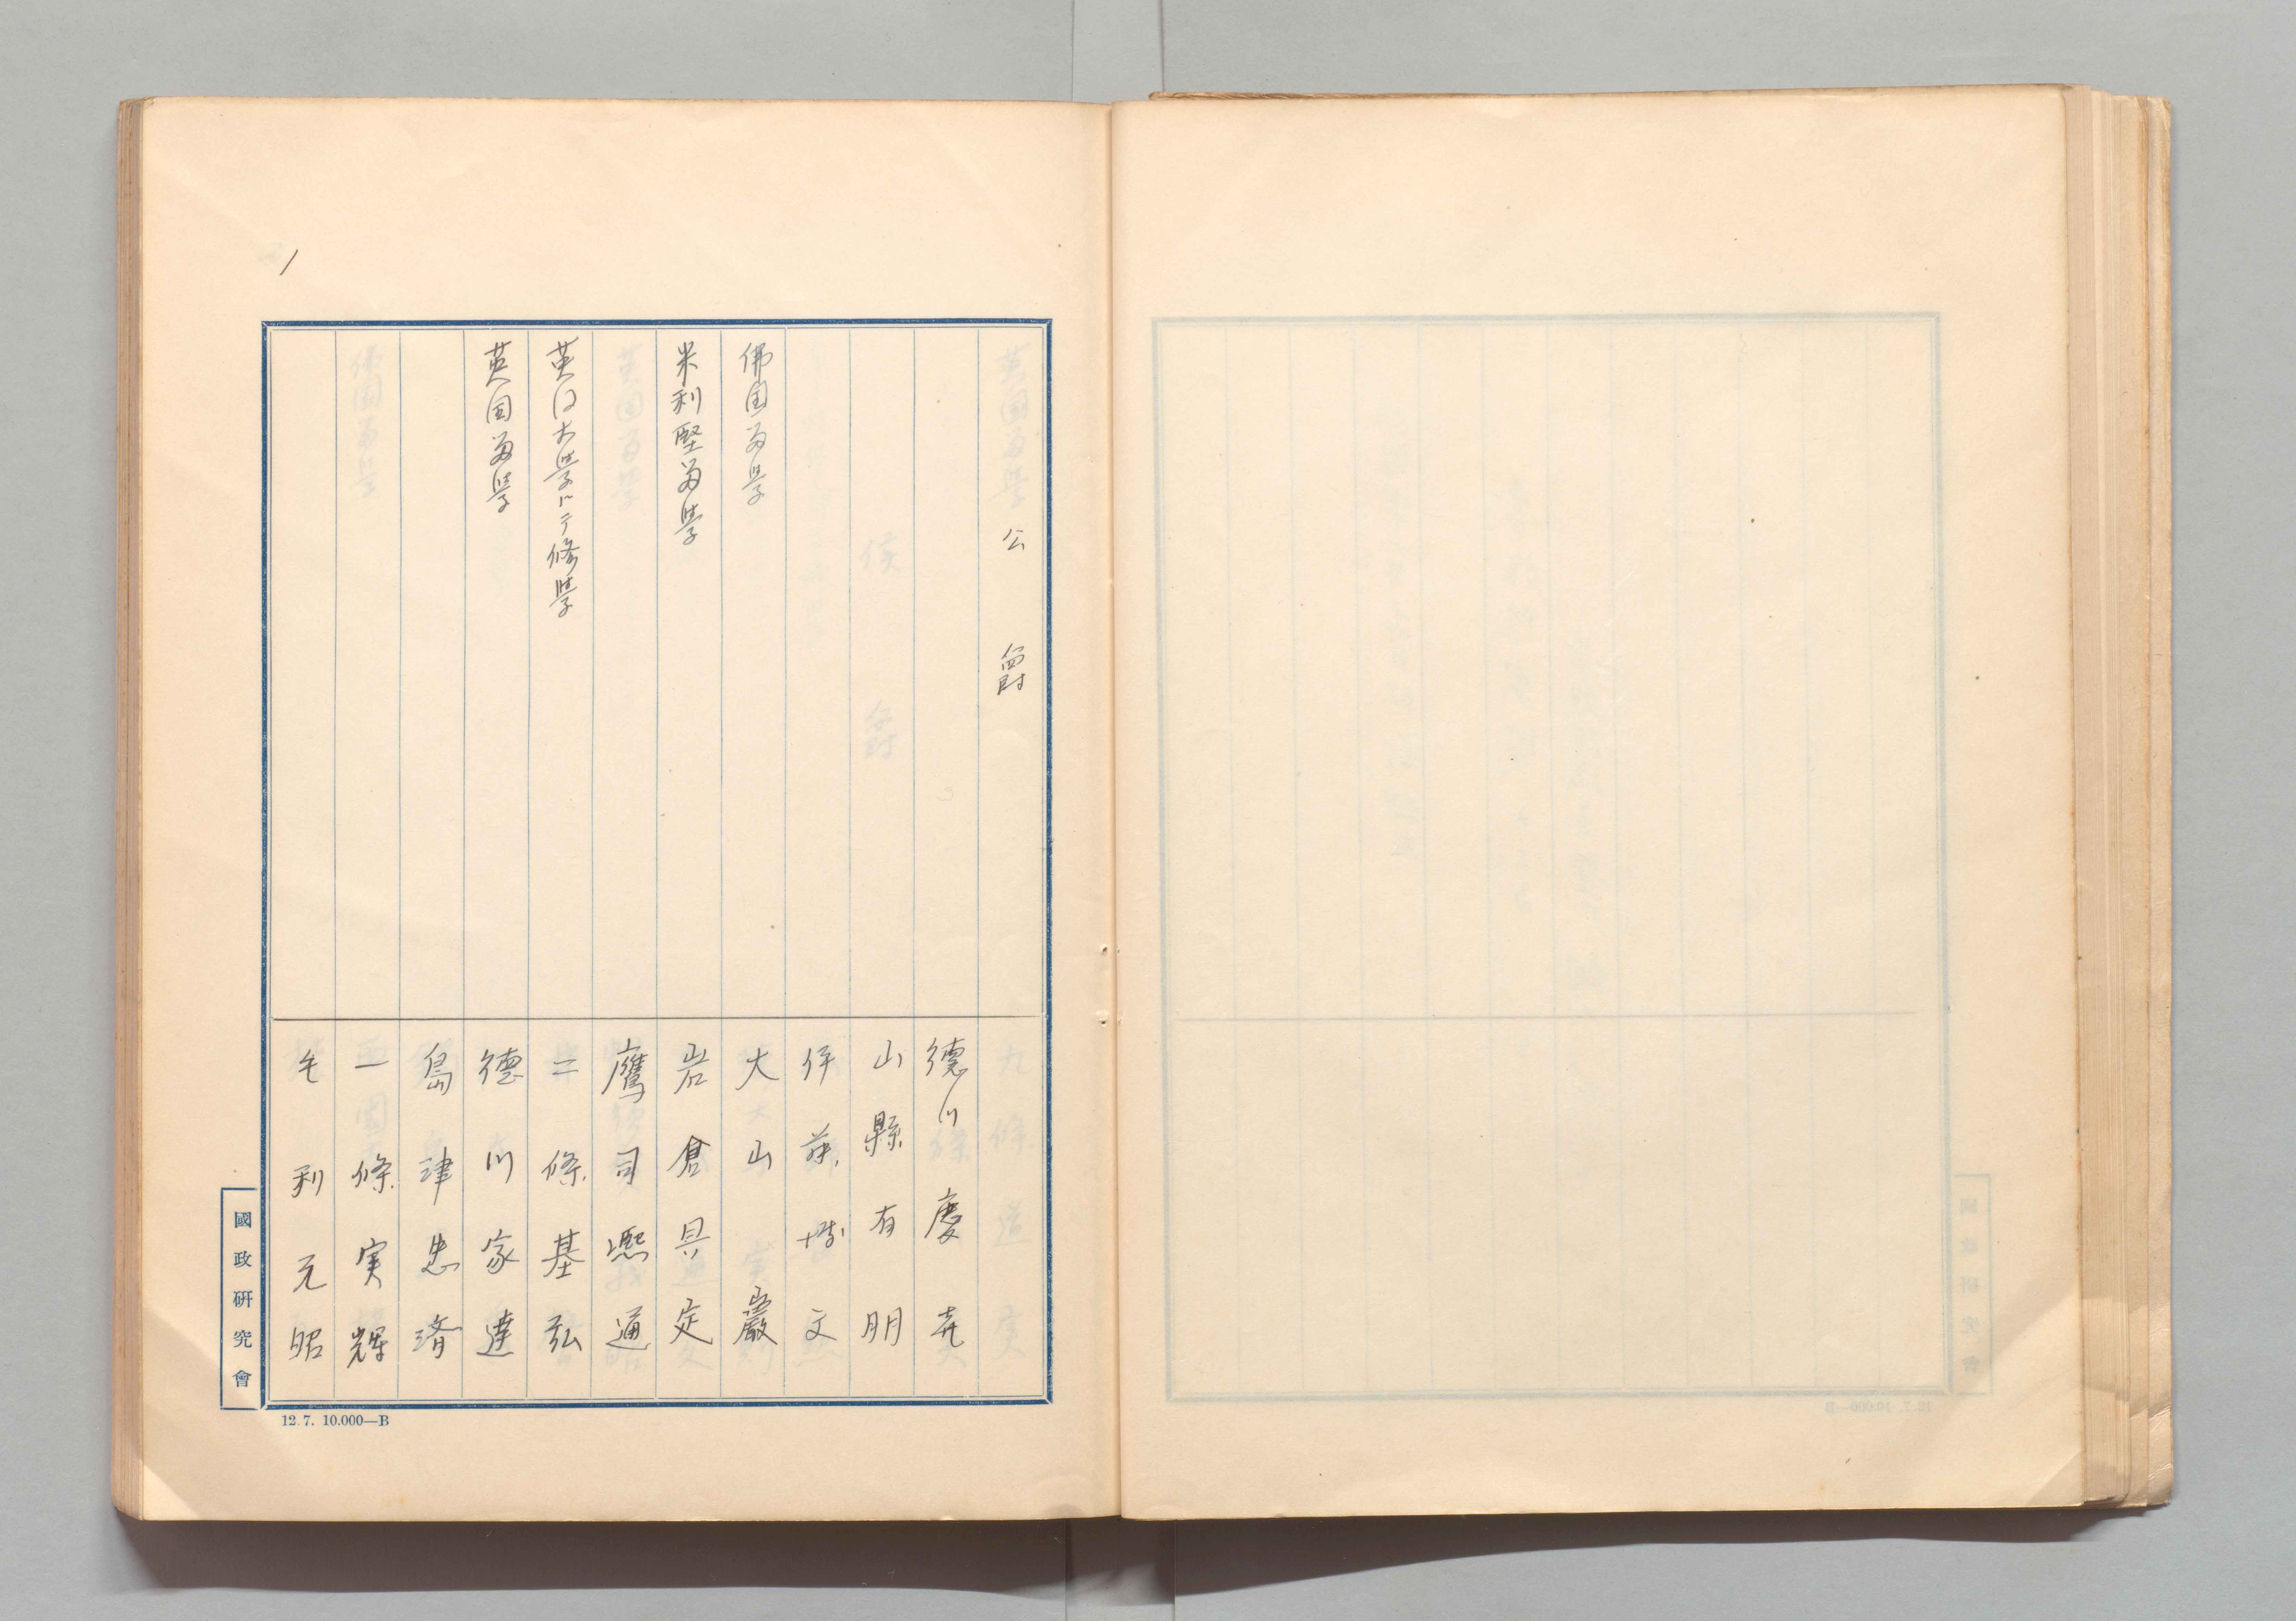 1
公爵
德川慶喜
山縣有朋
伊藤博文
佛国留学
大山巖
米利堅留学
岩倉具定
鷹司熈通
英国大学ニテ修学
二條基弘
英国留学
德川家達
島津忠済
一條実輝
毛利元昭
國政研究會
12.7. 10.000—B